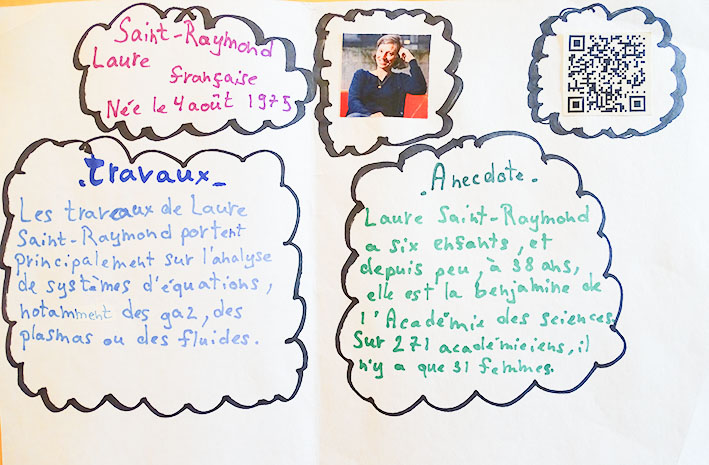 Saint-Raymond
Laure
française
Née le 4 août 1975
Travaux
Les travaux de Laure
Saint-Raymond portent
principalement sur l'analyse
de systèmes d'équations,
notamment des gaz, des
plasmas ou des fluides.
Anecdote
Laure Saint-Raymond
a six enfants, et
depuis peu, à 38 ans,
elle est la benjamine de
l'Académie des sciences.
Sur 271 académiciens, il
n'y a que 31 femmes.